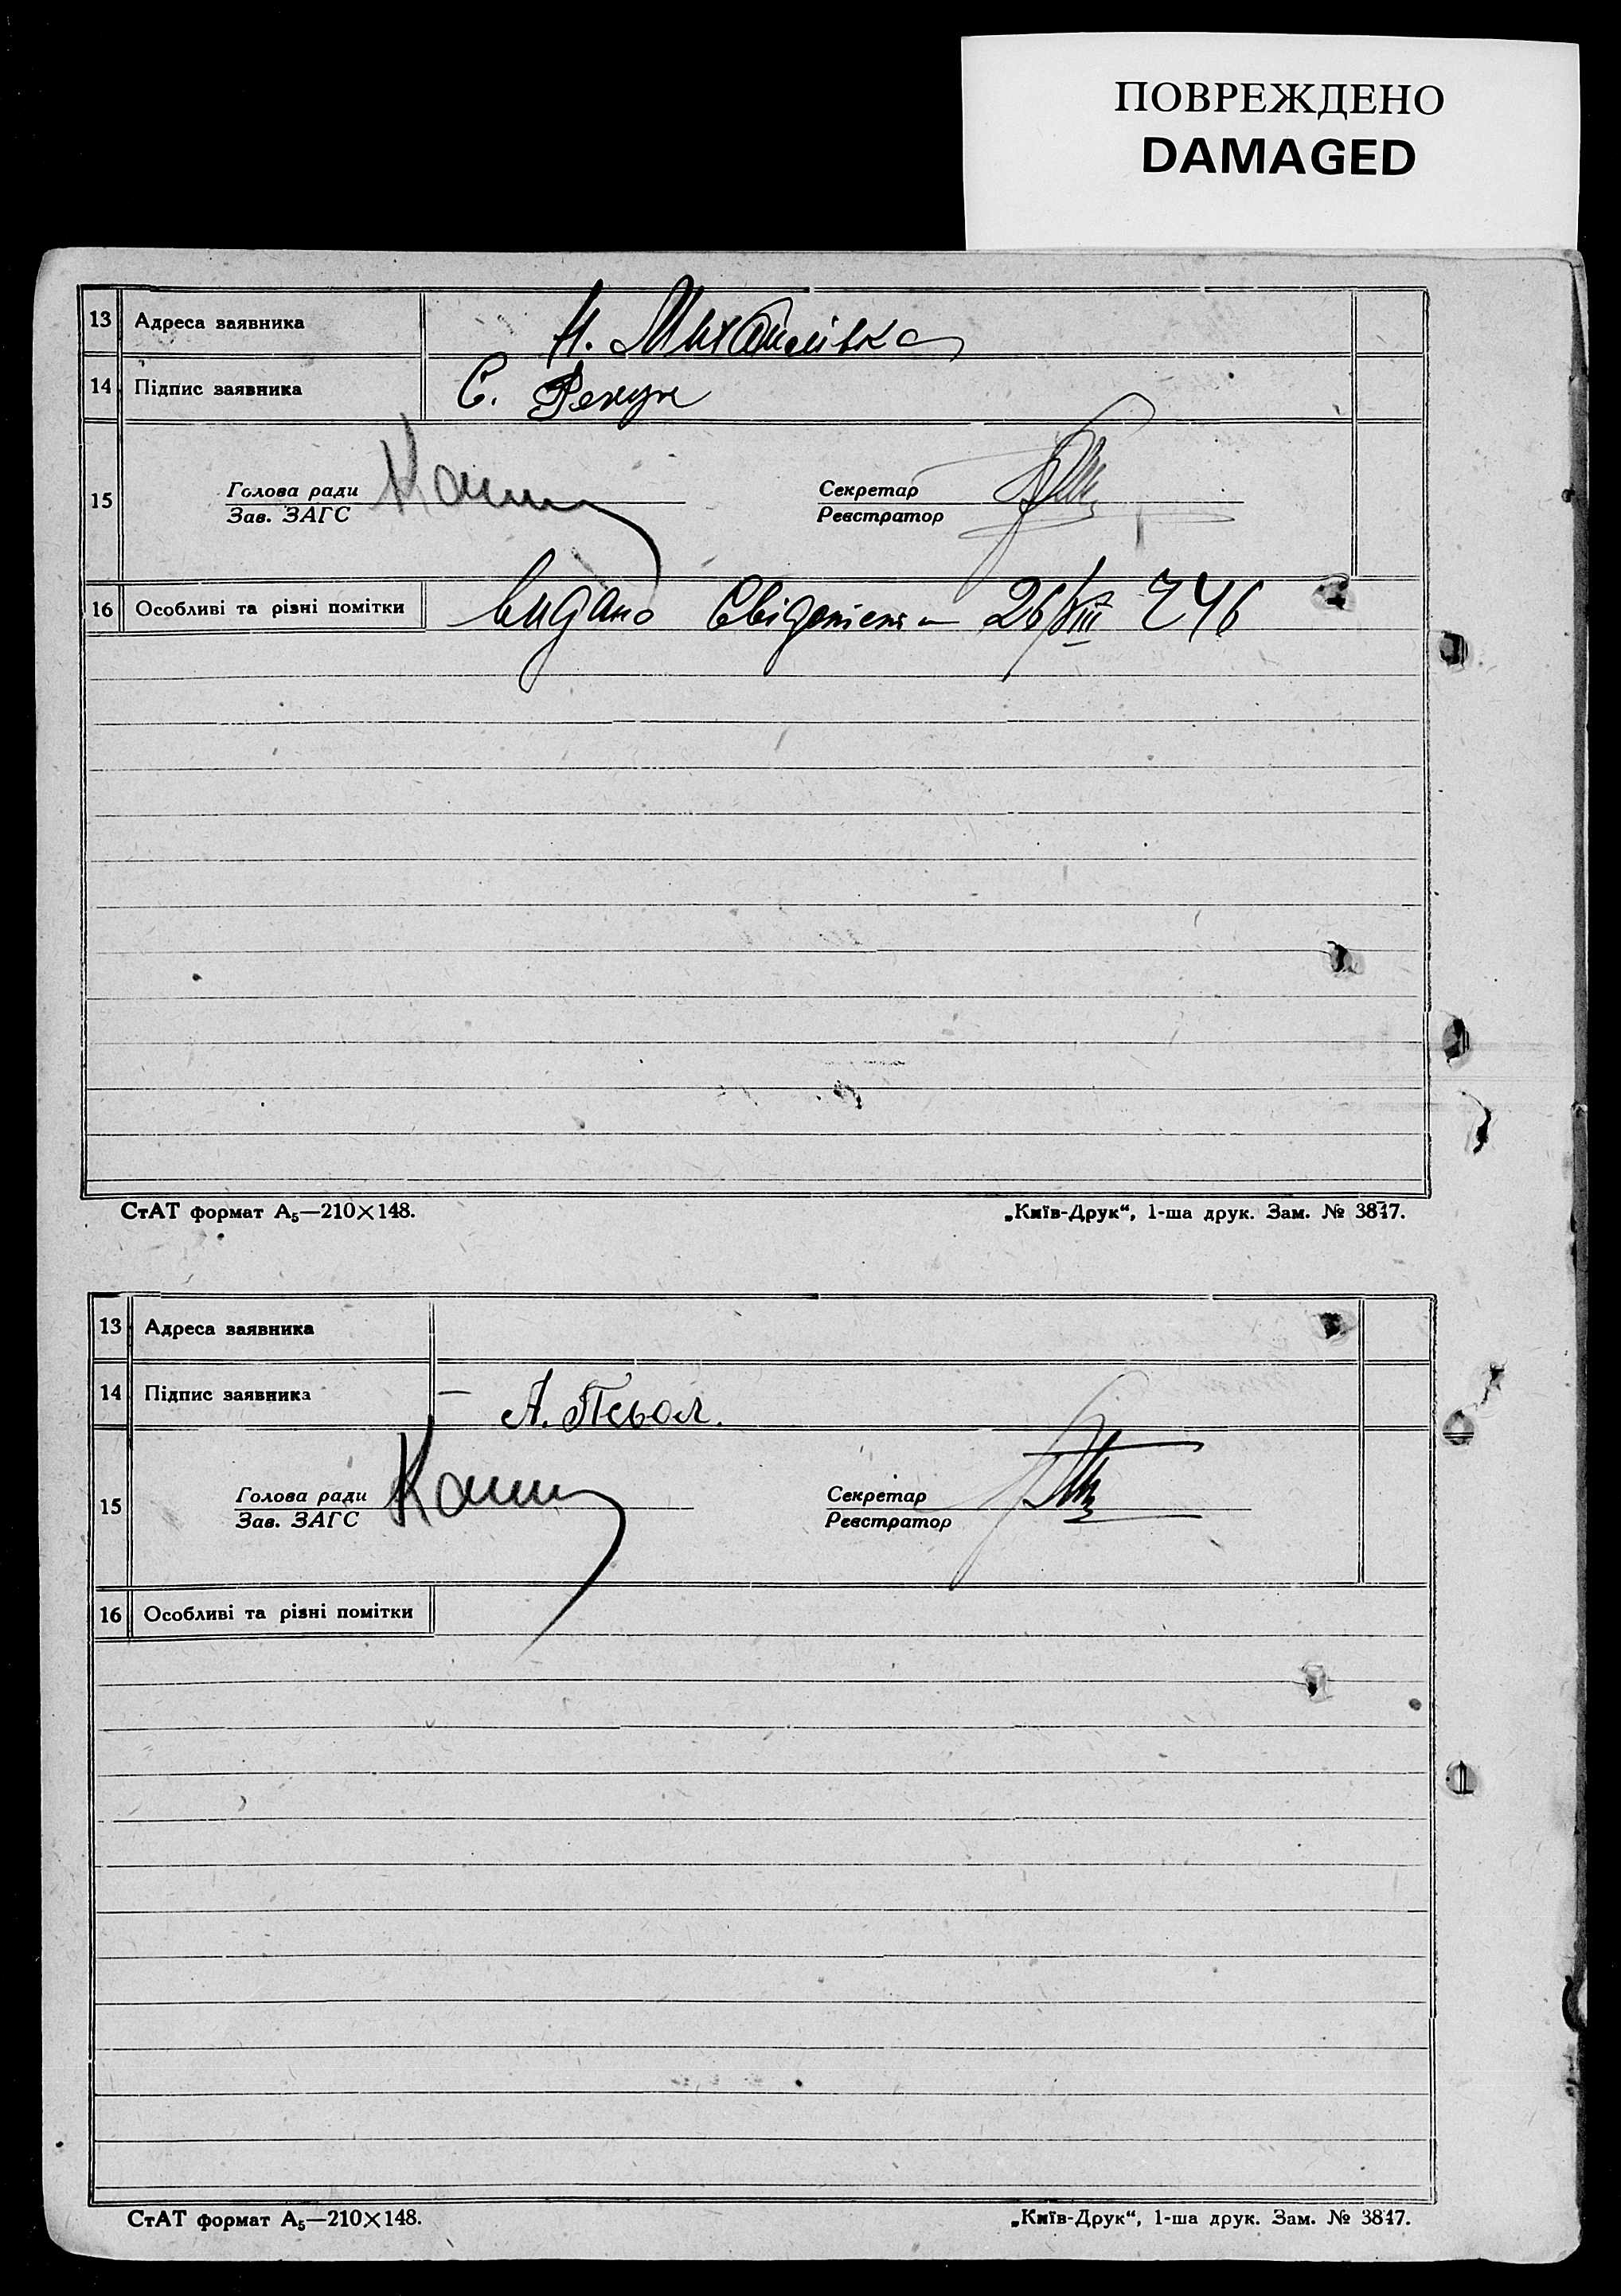 ПОВРЕЖДЕНО
DAMAGED
13 Адреса заявника Н. Михайлівка
14 Підпис заявника С. Рекун
15 Голова ради Секретар
Зав. ЗАГС Реєстратор
16 Особливі та різні помітки видано 26/VIII 46
СтАТ формат А₅—210×148. „Київ-Друк“, 1-ша друк. Зам. № 3847.
13 Адреса заявника
14 Підпис заявника — А. Псьол.
15 Голова ради Секретар
Зав. ЗАГС Реєстратор
16 Особливі та різні помітки
СтАТ формат А₅—210×148. „Київ-Друк“, 1-ша друк. Зам. № 3847.